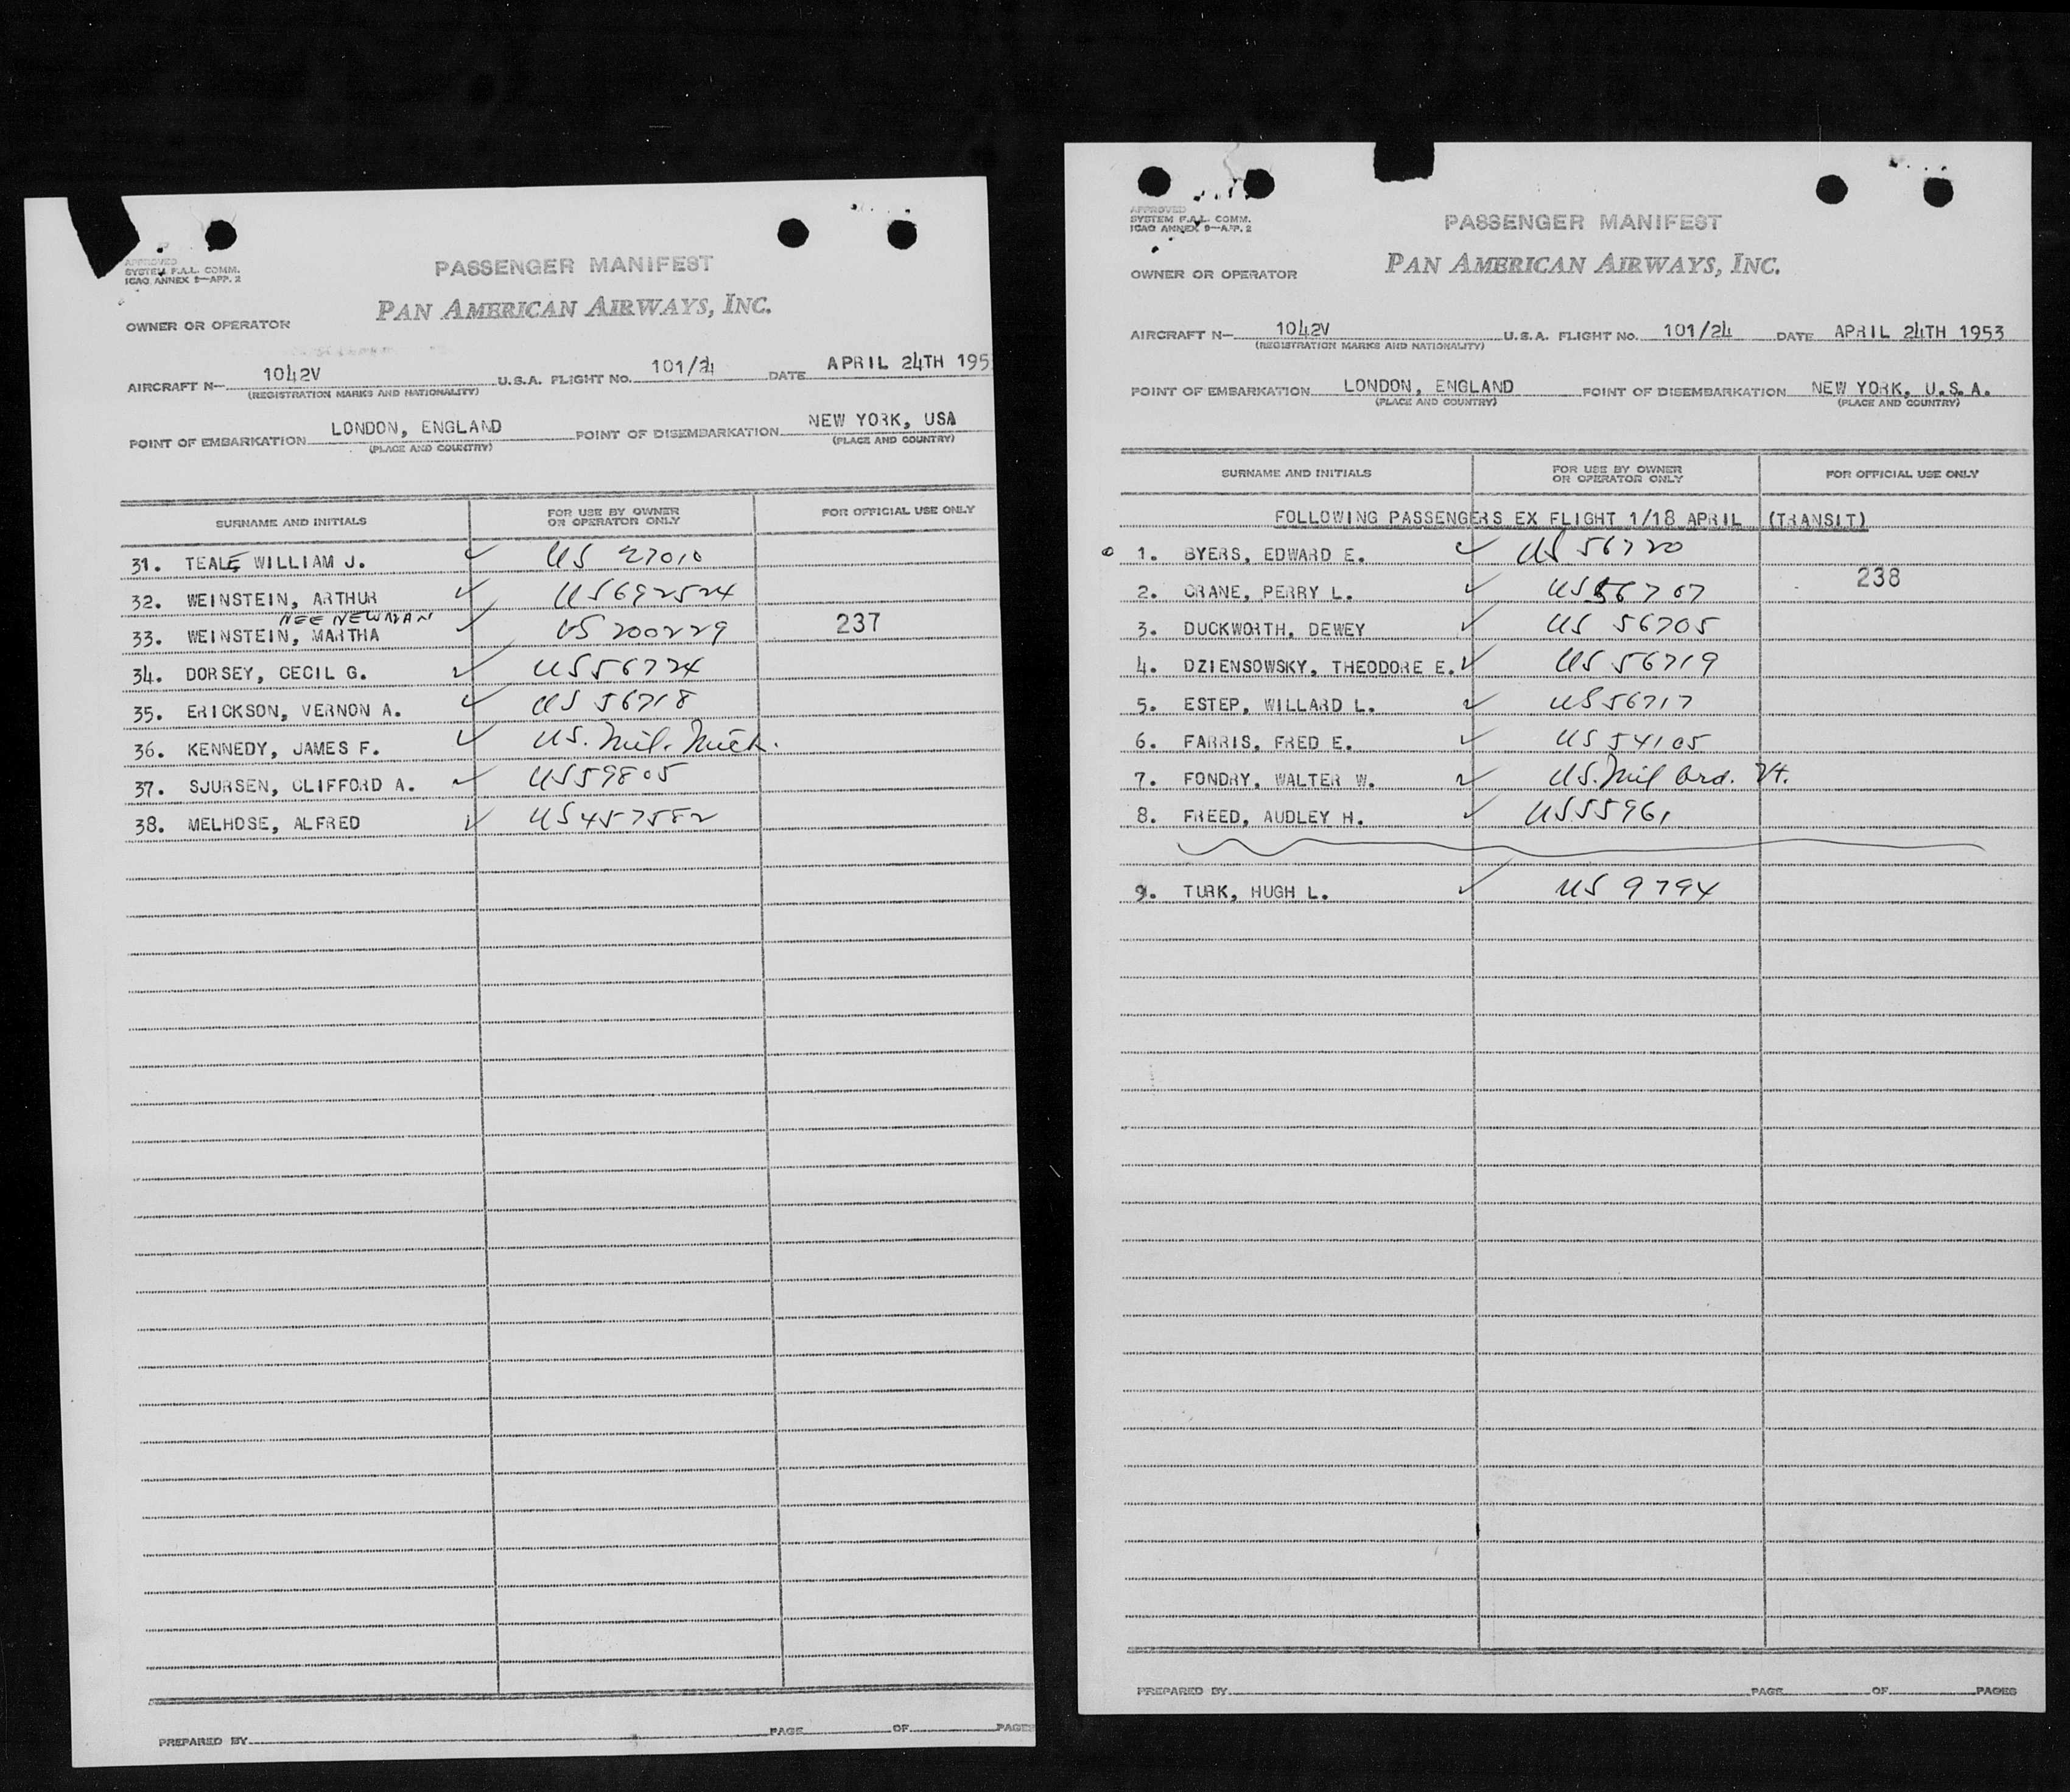 APPROVED
SYSTEM F.A.L. COMM.
ICAO ANNEX 9—APP. 2
PASSENGER MANIFEST
PAN AMERICAN AIRWAYS, INC.
OWNER OR OPERATOR
AIRCRAFT N— 1042V U.S.A. FLIGHT NO. 101/24 DATE APRIL 24TH 195
(REGISTRATION MARKS AND NATIONALITY)
POINT OF EMBARKATION LONDON, ENGLAND POINT OF DISEMBARKATION NEW YORK, USA
(PLACE AND COUNTRY) (PLACE AND COUNTRY)
SURNAME AND INITIALS FOR USE BY OWNER OR OPERATOR ONLY FOR OFFICIAL USE ONLY
31. TEALE, WILLIAM J. ✓ US 27010
32. WEINSTEIN, ARTHUR ✓ US692524
NEE NEWMAN
33. WEINSTEIN, MARTHA ✓ US 200229 237
34. DORSEY, CECIL G. ✓ US56724
35. ERICKSON, VERNON A. ✓ US 56718
36. KENNEDY, JAMES F. ✓ US. Mil. Mich.
37. SJURSEN, CLIFFORD A. ✓ US59805
38. MELHOSE, ALFRED ✓ US457582
PREPARED BY PAGE OF PAGES
APPROVED
SYSTEM F.A.L. COMM.
ICAO ANNEX 9—APP. 2
PASSENGER MANIFEST
PAN AMERICAN AIRWAYS, INC.
OWNER OR OPERATOR
AIRCRAFT N— 1042V U.S.A. FLIGHT NO. 101/24 DATE APRIL 24TH 1953
(REGISTRATION MARKS AND NATIONALITY)
POINT OF EMBARKATION LONDON, ENGLAND POINT OF DISEMBARKATION NEW YORK, U.S.A.
(PLACE AND COUNTRY) (PLACE AND COUNTRY)
SURNAME AND INITIALS FOR USE BY OWNER OR OPERATOR ONLY FOR OFFICIAL USE ONLY
FOLLOWING PASSENGERS EX FLIGHT 1/18 APRIL (TRANSIT)
1. BYERS, EDWARD E. ✓ US 56720
238
2. CRANE, PERRY L. ✓ US56707
3. DUCKWORTH, DEWEY ✓ US 56705
4. DZIENSOWSKY, THEODORE E. ✓ US 56719
5. ESTEP, WILLARD L. ✓ US56717
6. FARRIS, FRED E. ✓ US 54105
7. FONDRY, WALTER W. ✓ US. Mil Ord. Vt.
8. FREED, AUDLEY H. ✓ US55961
9. TURK, HUGH L. ✓ US 9794
PREPARED BY PAGE OF PAGES